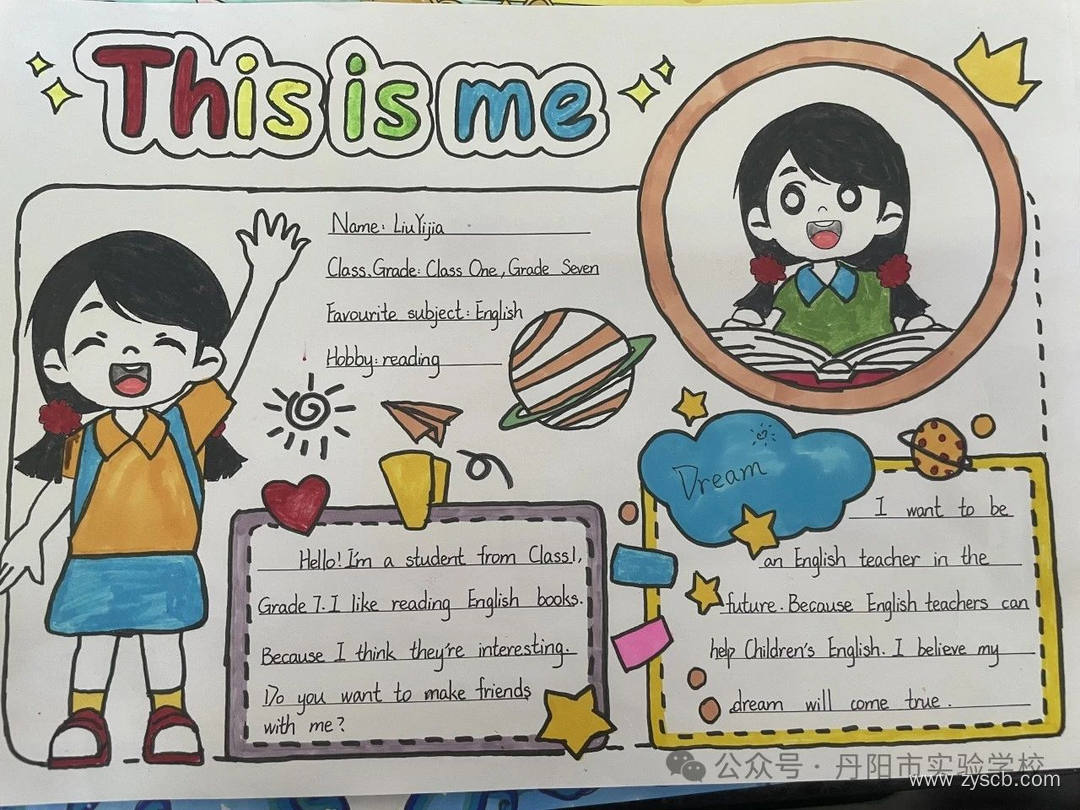 This is me
Name: Liu Yijia
Class.Grade: Class One, Grade Seven
Favourite subject: English
Hobby: reading
Hello! I'm a student from Class1,
Grade 7. I like reading English books.
Because I think they're interesting.
Do you want to make friends
with me?
Dream
I want to be
an English teacher in the
future. Because English teachers can
help Children's English. I believe my
dream will come true.
公众号·丹阳市实验学校
www.zyscb.com